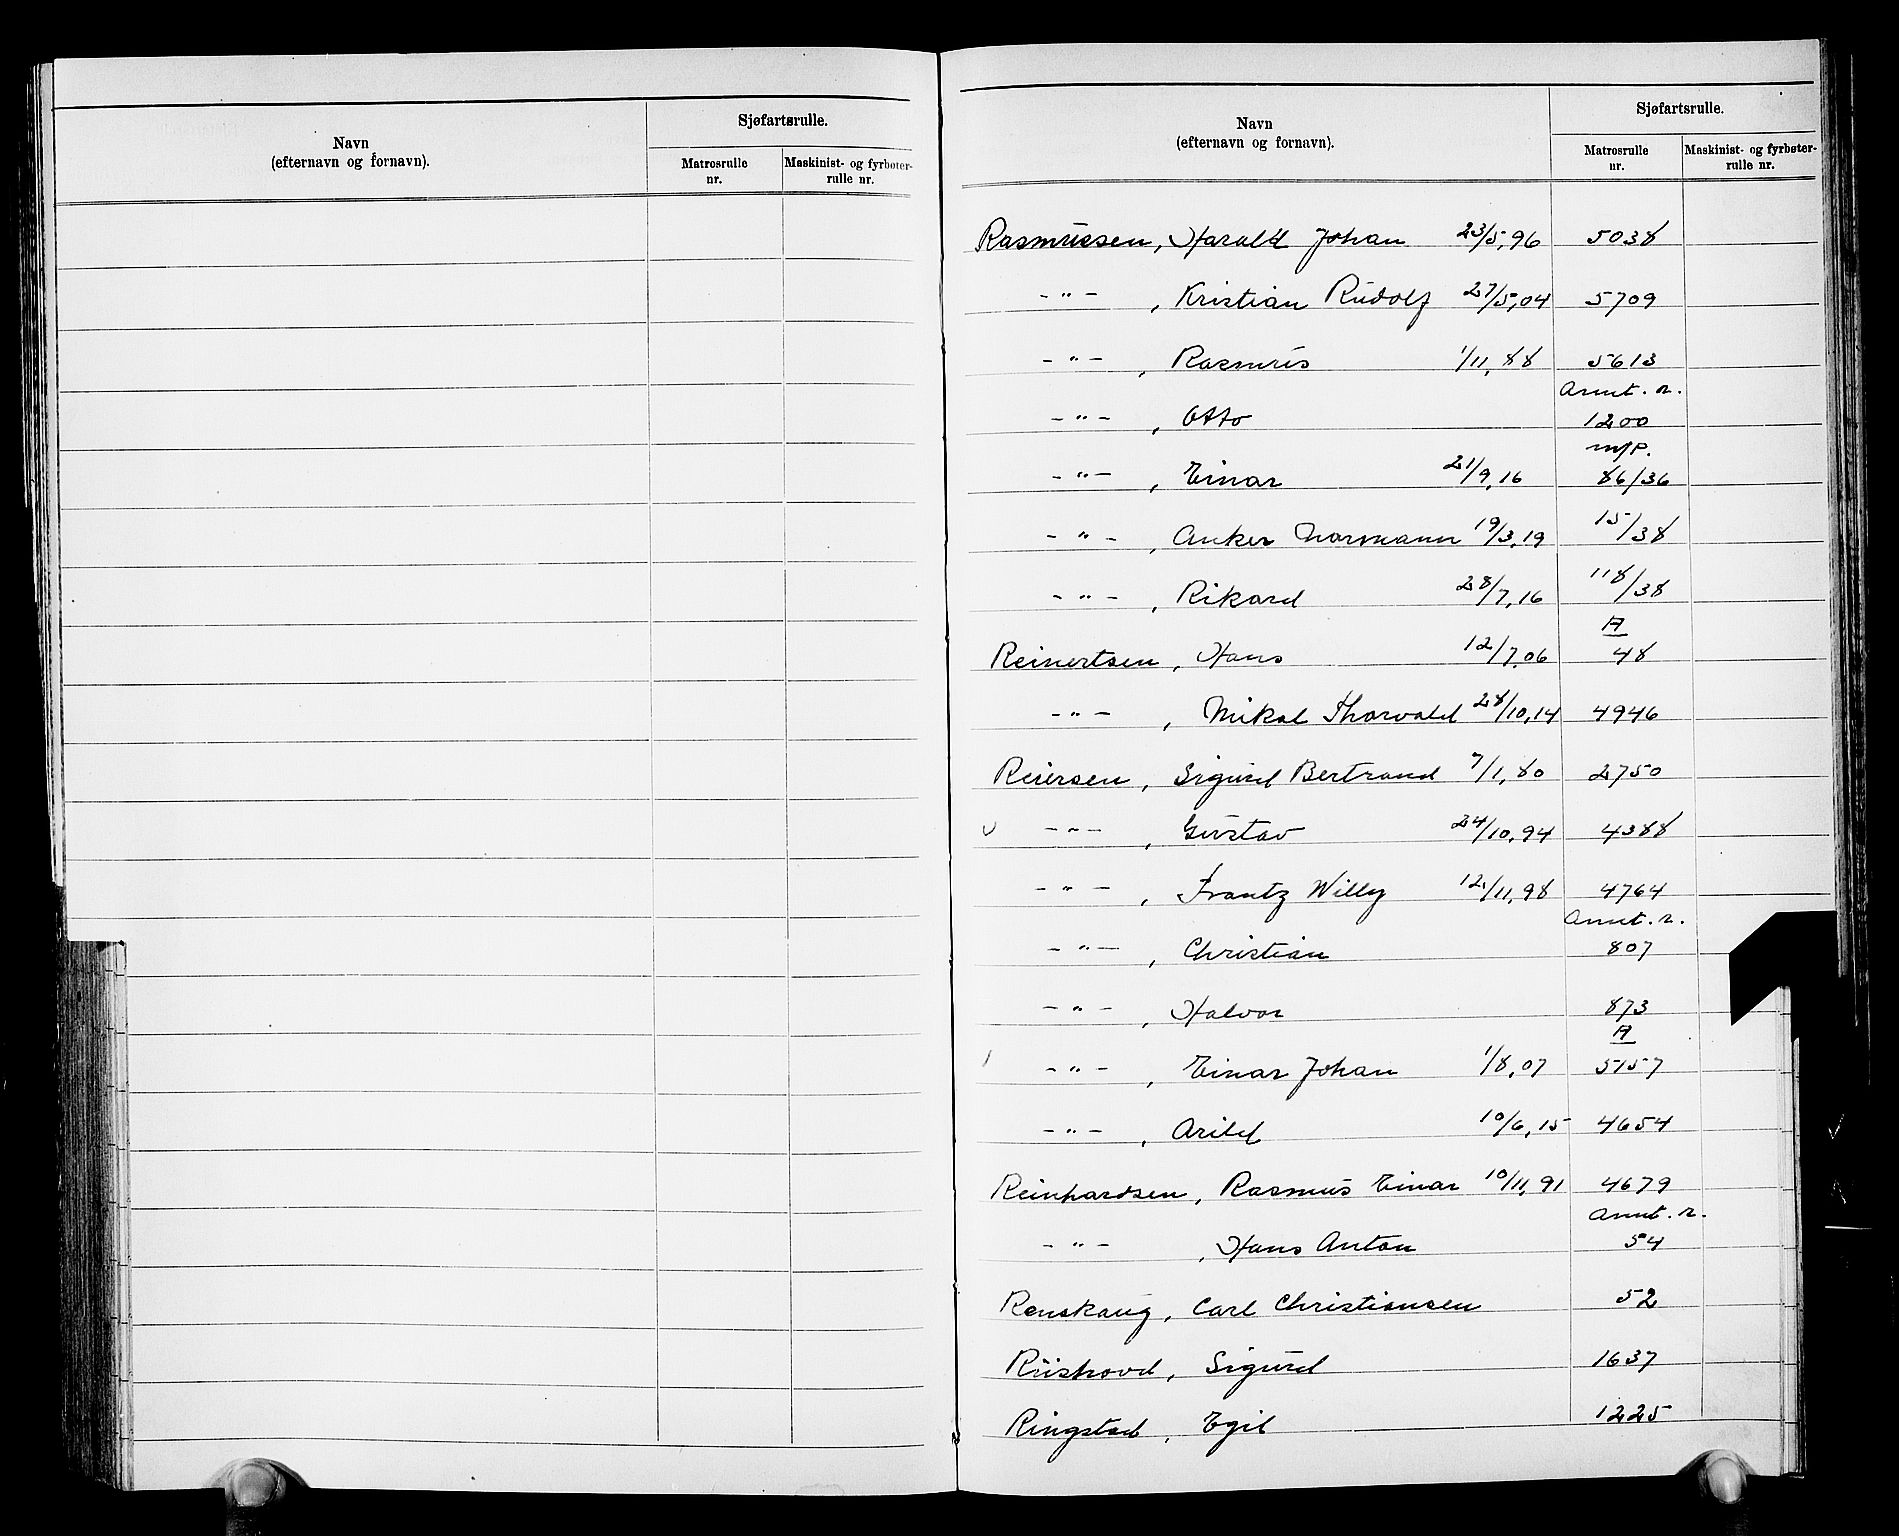 Navn
(efternavn og fornavn).
Sjøfartsrulle.
Matrosrulle
nr.
Maskinist- og fyrbøter-
rulle nr.
Navn
(efternavn og fornavn).
Sjøfartsrulle.
Matrosrulle
nr.
Maskinist- og fyrbøter-
rulle nr.
Rasmussen, Harald Johan 23/5, 96 5038
-"- , Kristian Rudolf 27/5, 04 5709
-"- , Rasmus 1/11, 88 5613
Annt. r.
-"- , Otto 1200
m/P.
-"- , Einar 21/9, 16 86/36
-"- , Anker Normann 19/3, 19 15/38
-"- , Rikard 28/7, 16 118/38
A
Reinertsen, Hans 12/7, 06 48
-"- , Mikal Thorvald 28/10, 14 4946
Reiersen, Sigurd Bertrand 7/1, 80 2750
-"- , Gustav 24/10, 94 4388
-"- , Frantz Willy 12/11, 98 4764
Annt. r.
-"- , Christian 807
-"- , Halvor 873
A
-"- , Einar Johan 1/8, 07 5157
-"- , Arild 10/6, 15 4654
Reinhardsen, Rasmus Einar 10/11, 91 4679
Annt. r.
-"- , Hans Anton 54
Renskaug, Carl Christiansen 52
Riishovd, Sigurd 1637
Ringstad, Egil 1225